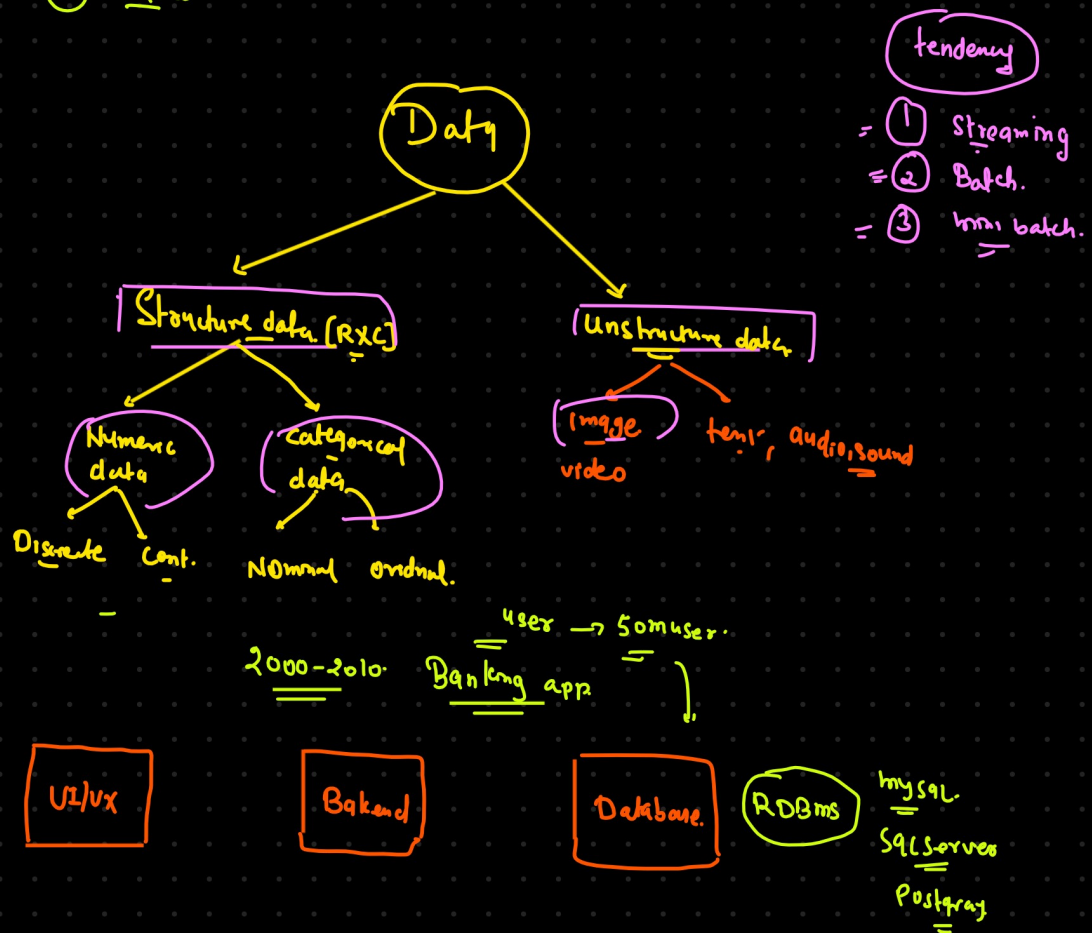 tendency
= 1 Streaming
= 2 Batch.
= 3 mini batch.
Data
Structure data [RXC]
Unstructure data
Numeric
data
Categorical
data
image
video
audio, sound
Discrete
Cont.
Nominal
user → 50m user.
2000-2010.
Banking app
UI/UX
Bakend
Database.
RDBms
mysql.
SQL Server
Postgray